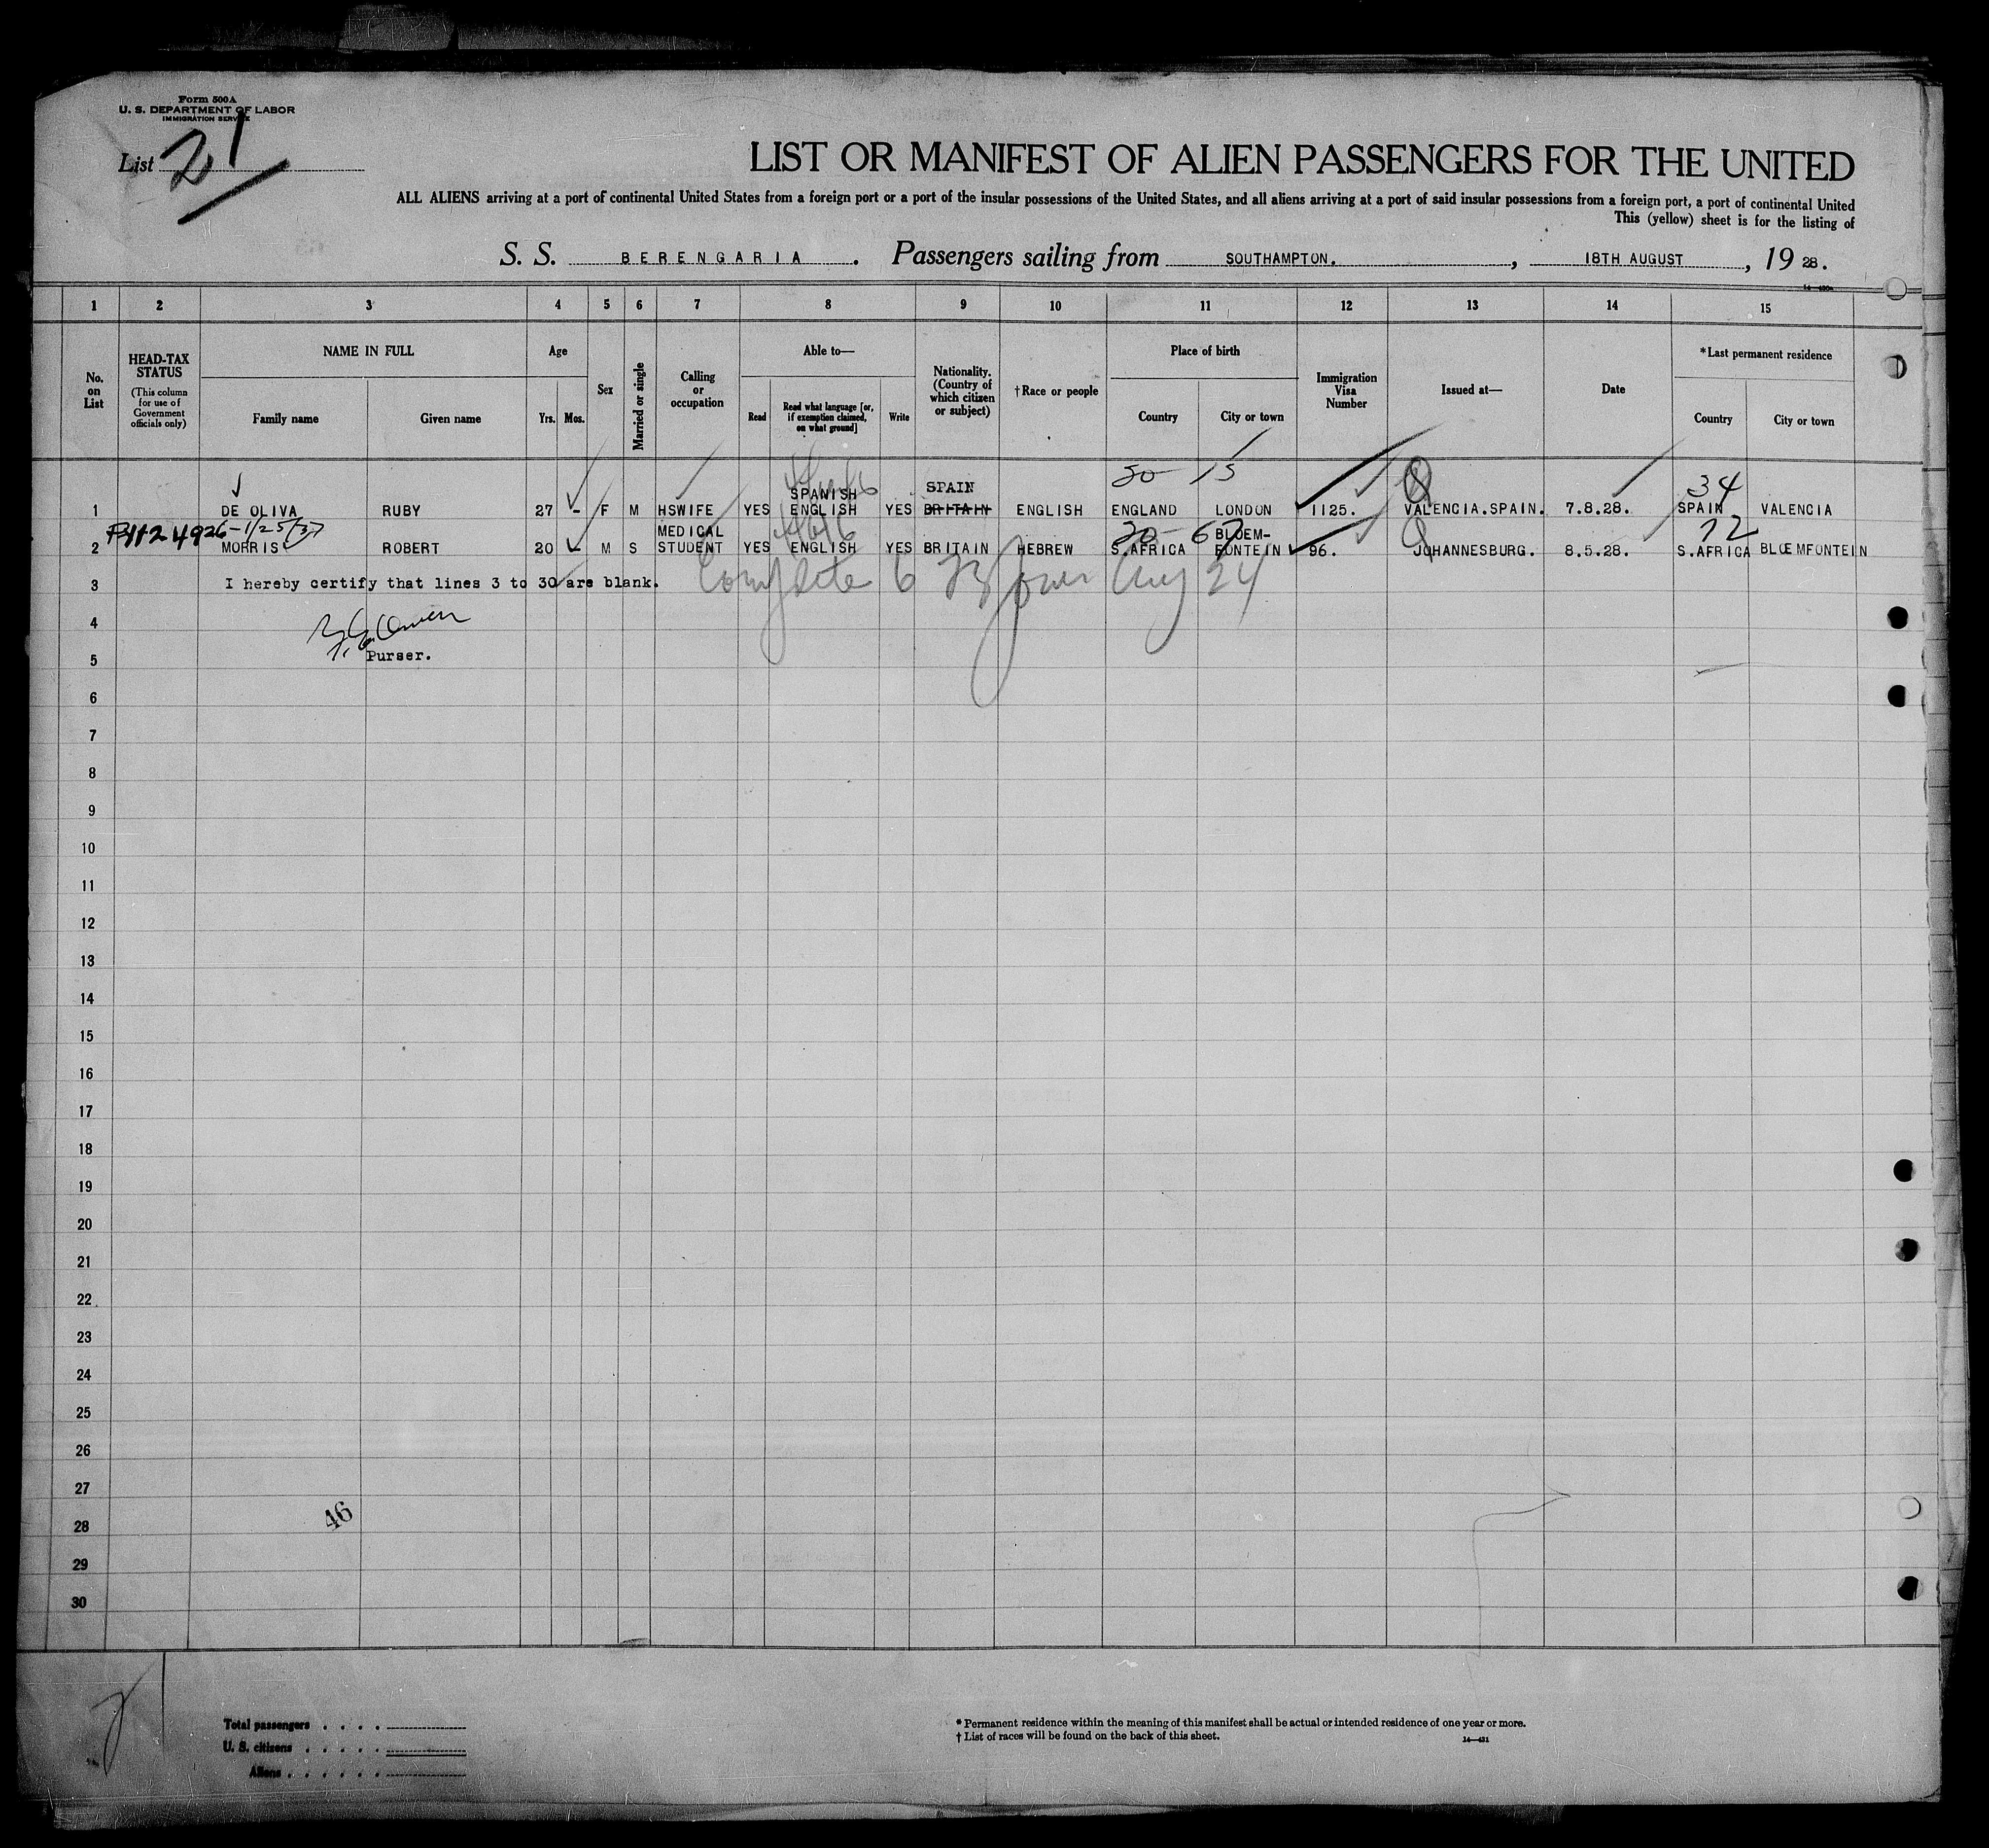 Form 500A
U. S. DEPARTMENT OF LABOR
IMMIGRATION SERVICE
List 21
LIST OR MANIFEST OF ALIEN PASSENGERS FOR THE UNITED
ALL ALIENS arriving at a port of continental United States from a foreign port or a port of the insular possessions of the United States, and all aliens arriving at a port of said insular possessions from a foreign port, a port of continental United
This (yellow) sheet is for the listing of
S. S. BERENGARIA. Passengers sailing from SOUTHAMPTON. , 18TH AUGUST , 19 28.
1 2 3 4 5 6 7 8 9 10 11 12 13 14 15
No. on List
HEAD-TAX STATUS
(This column for use of Government officials only)
NAME IN FULL
Family name Given name
Age
Yrs. Mos.
Sex
Married or single
Calling or occupation
Able to—
Read Read what language [or, if exemption claimed, on what ground] Write
Nationality. (Country of which citizen or subject)
†Race or people
Place of birth
Country City or town
Immigration Visa Number
Issued at—
Date
*Last permanent residence
Country City or town
30 15 34
SPANISH SPAIN
1 DE OLIVA RUBY 27 - F M HSWIFE YES ENGLISH YES BRITAIN ENGLISH ENGLAND LONDON 1125. VALENCIA.SPAIN. 7.8.28. SPAIN VALENCIA
MEDICAL BLOEM-
2 MORRIS ROBERT 20 - M S STUDENT YES ENGLISH YES BRITAIN HEBREW S.AFRICA FONTEIN 96. JOHANNESBURG. 8.5.28. S.AFRICA BLOEMFONTEIN
3 I hereby certify that lines 3 to 30 are blank. Aug 24
4
5 Purser.
6
7
8
9
10
11
12
13
14
15
16
17
18
19
20
21
22
23
24
25
26
27
46
28
29
30
Total passengers . . . .
U. S. citizens . . . . .
Aliens . . . . . .
* Permanent residence within the meaning of this manifest shall be actual or intended residence of one year or more.
† List of races will be found on the back of this sheet.
14—431